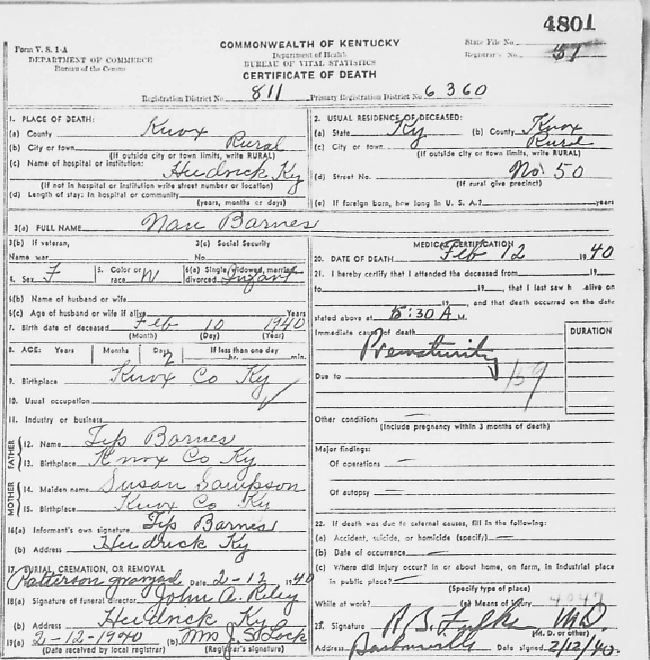 4801
Form V. S. 1-A
DEPARTMENT OF COMMERCE
Bureau of the Census
COMMONWEALTH OF KENTUCKY
Department of Health
BUREAU OF VITAL STATISTICS
CERTIFICATE OF DEATH
State File No.
Registrar's No. 51
Registration District No. 811 Primary Registration District No. 6360
1. PLACE OF DEATH:
(a) County Knox
(b) City or town Rural
(If outside city or town limits, write RURAL)
(c) Name of hospital or institution: Heidrick Ky
(If not in hospital or institution write street number or location)
(d) Length of stay: In hospital or community
(years, months or days)
2. USUAL RESIDENCE OF DECEASED:
(a) State Ky (b) County Knox
(c) City or town Rural
(If outside city or town limits, write RURAL)
(d) Street No. No. 50
(If rural give precinct)
(e) If foreign born, how long in U. S. A.? years
3(a) FULL NAME Nan Barnes
3(b) If veteran,
Name war
3(c) Social Security
No.
4. Sex F
5. Color or
race W
6(a) Single, widowed, married,
divorced Infant
6(b) Name of husband or wife
6(c) Age of husband or wife if alive Years
7. Birth date of deceased Feb 10 1940
(Month) (Day) (Year)
8. AGE: Years Months Days If less than one day
2 hr. min.
9. Birthplace Knox Co Ky
10. Usual occupation
11. Industry or business
FATHER
12. Name Tip Barnes
13. Birthplace Knox Co Ky
MOTHER
14. Maiden name Susan Sampson
15. Birthplace Knox Co Ky
16(a) Informant's own signature Tip Barnes
(b) Address Heidrick Ky
17. BURIAL, CREMATION, OR REMOVAL
Patterson gravyad Date 2-12 1940
18(a) Signature of funeral director John A. Riley
(b) Address Heidrick Ky
19(a) 2-12-1940 (b) Mrs J. S. Lock
(Date received by local registrar) (Registrar's signature)
MEDICAL CERTIFICATION
20. DATE OF DEATH Feb 12 1940
21. I hereby certify that I attended the deceased from 19
to 19 , that I last saw h alive on
19 , and that death occurred on the date
stated above at 5:30 A M.
Immediate cause of death
Prematurity
DURATION
Due to
159
Other conditions
(Include pregnancy within 3 months of death)
Major findings:
Of operations
Of autopsy
22. If death was due to external causes, fill in the following:
(a) Accident, suicide, or homicide (specify)
(b) Date of occurrence
(c) Where did injury occur? in or about home, on farm, in industrial place
in public place?
(Specify type of place)
While at work? (e) Means of Injury
23. Signature M.D.
(M. D. or other)
Address Barbourville Date signed 2/12/40